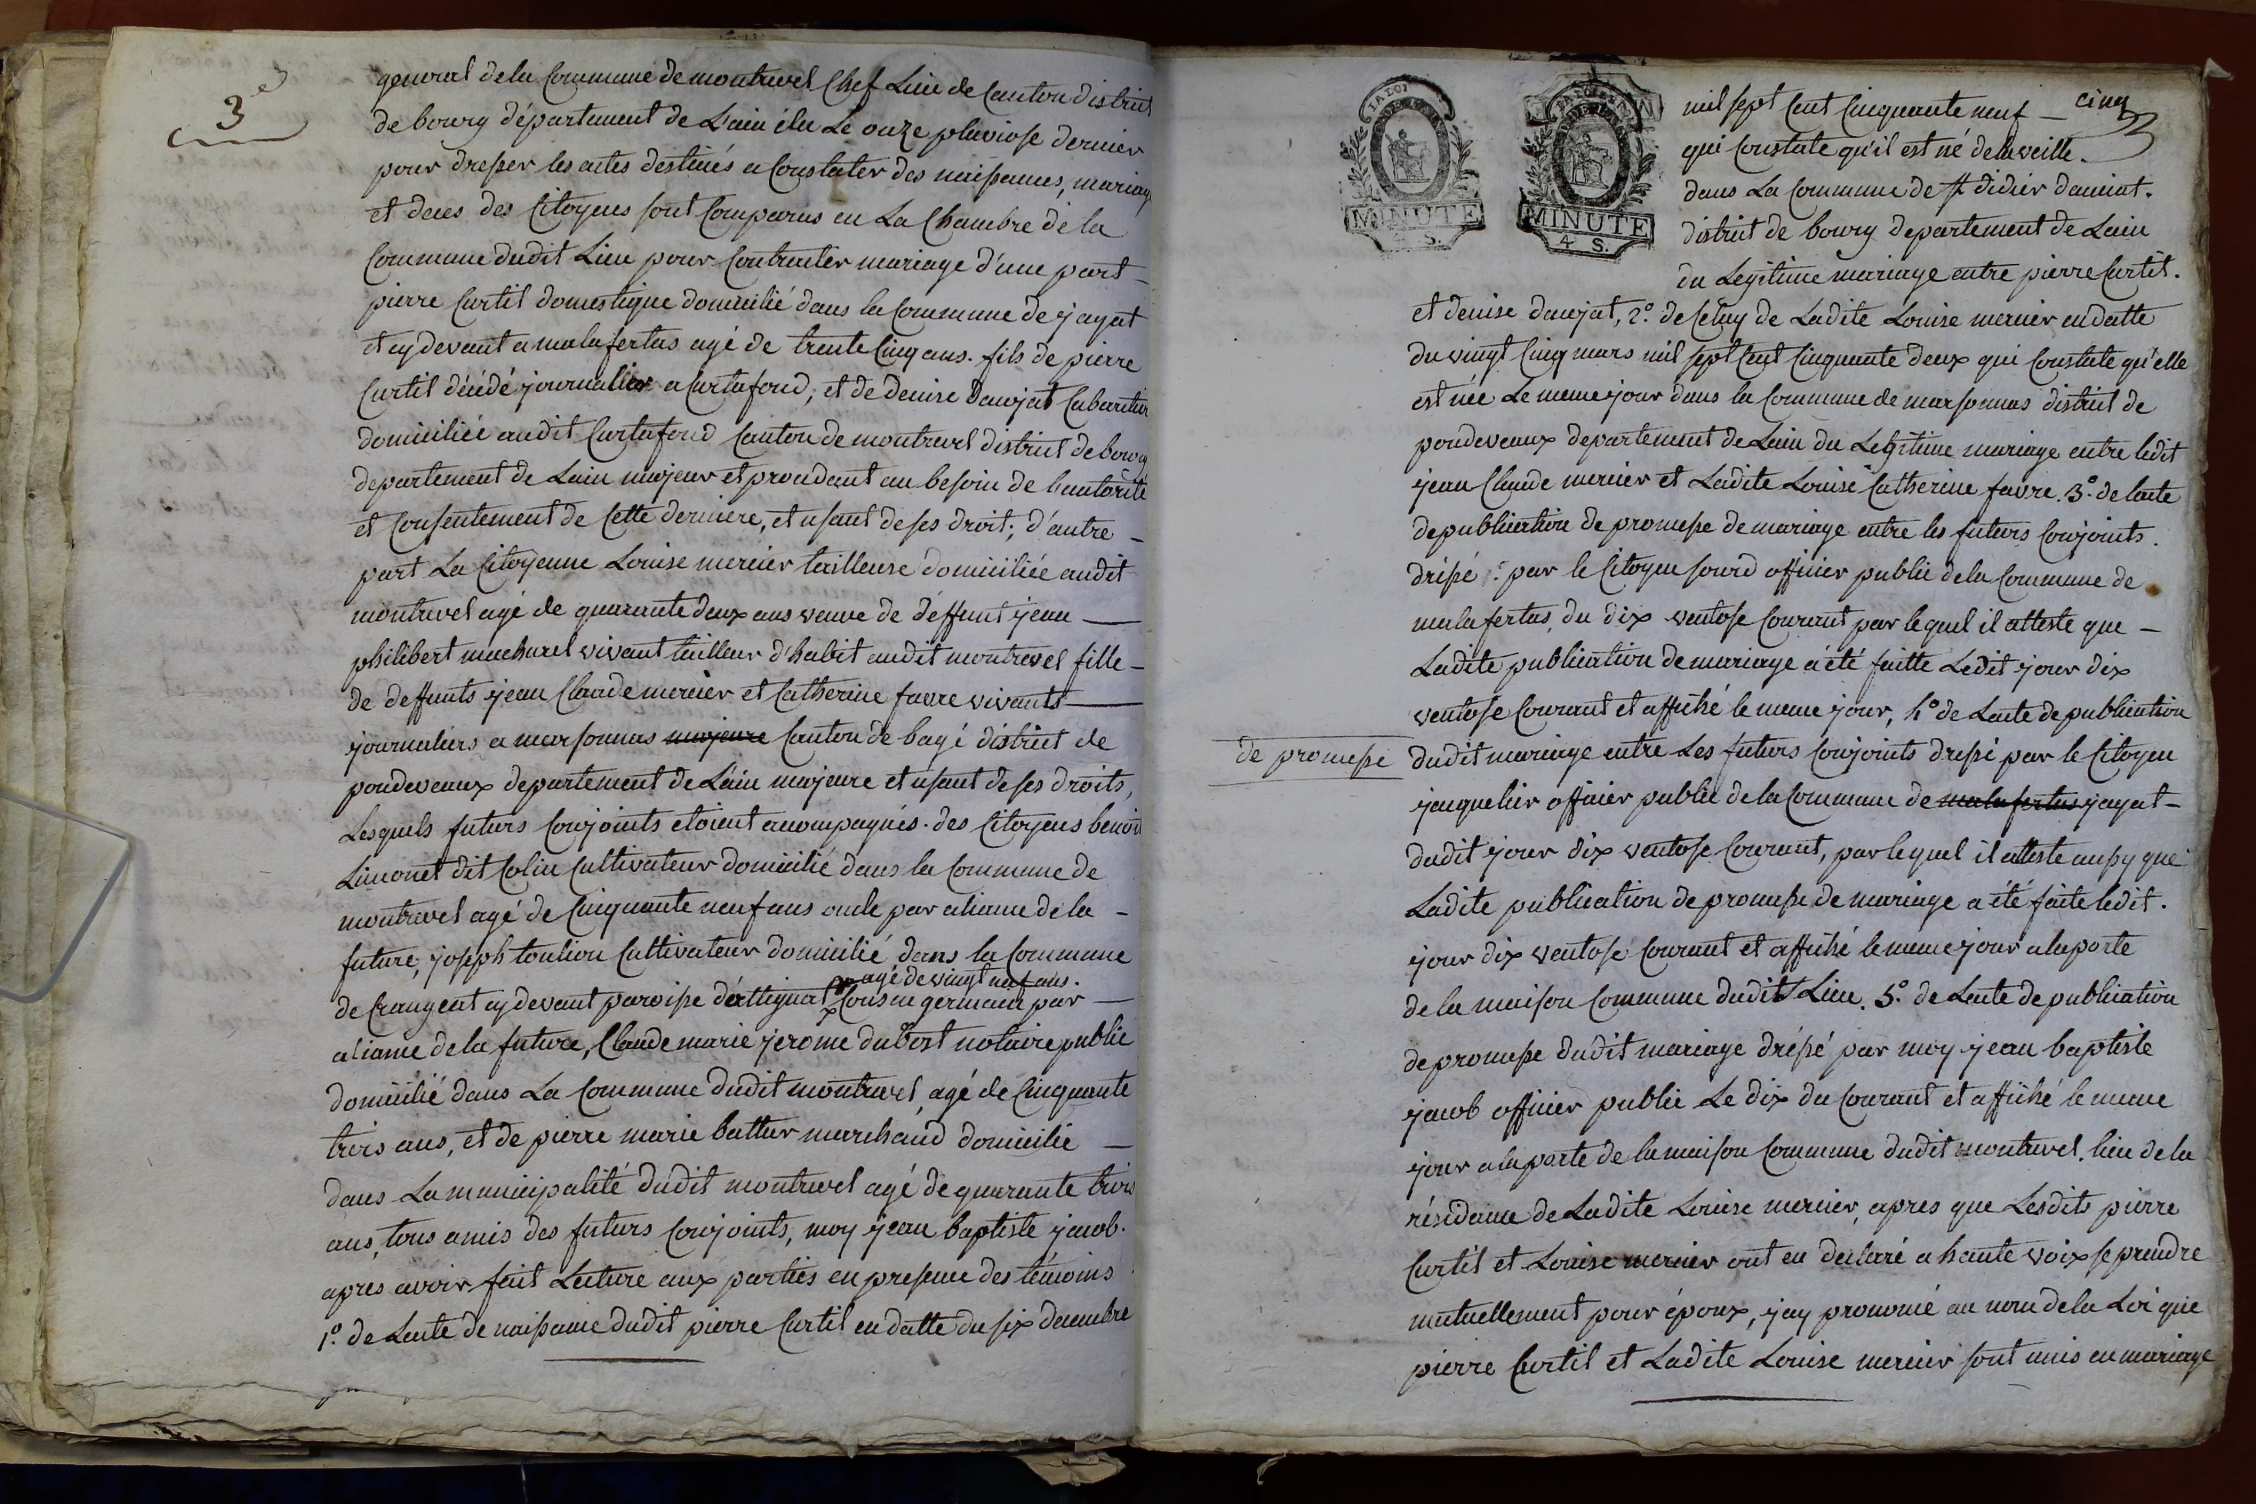 3e
general de la Commune de montrevel Chef Lieu de Canton district
de bourg département de L'ain élu Le onze pluviose dernier
pour dresser les actes destinés a Constater des naissances, mariage
et deces des Citoyens sont Comparus en La Chambre de la
Commune dudit Lieu pour Contracter mariage d'une part
pierre Curtil domestique domicilié dans la Commune de jayat
et cy devant a malafertas agé de trente Cinq ans. fils de pierre
Curtil décédé journalier a Curtafond, et de denise daujat Cabaretier
domiciliée audit Curtafond Canton de montrevel district de bourg
departement de Lain majeur et procedant au besoin de l'autorité
et Consentement de Cette derniere, et usant de ses droit; d'autre
part La Citoyenne Louise mercier tailleuse domiciliée audit
montrevel agé de quarante deux ans veuve de déffunt jean
philibert macharel vivant tailleur d'habit audit montrevel fille
de deffunts jean Claude mercier et Catherine favre vivants
journaliers a marsonnas majeure Canton de bagé district de
pondeveaux departement de L'ain majeure et usant de ses droits,
Lesquels futurs Conjoints etoient acompagnés. des Citoyens benoit
Limonet dit Colin Cultivateur domicilié dans la Commune de
montrevel agé de Cinquante neuf ans oncle par aliance de la
future, joseph toulion Cultivateur domicilié dans la Commune
agé de vingt neuf ans.
de Crangeat cy devant paroisse d'attignat Cousin germain par
aliance de la future, Claude marie jerome dubost notaire public
domicilié dans La Commune dudit montrevel, agé de Cinquante
trois ans, et de pierre marie battur marchand domicilié
dans La municipalité dudit montrevel agé de quarante trois
ans, tous amis des futurs Conjoints, moy jean baptiste jacob.
apres avoir fait Lecture aux parties en presence des témoins
1.º de Lacte de naissance dudit pierre Curtil en datte du six decembre
JALOI
MINUTE
4 S.
MINUTE
4 S.
cinq
mil sept Cent Cinquante neuf
qui Constate qu'il est né de la veille.
dans La Commune de st didier daussiat.
district de bourg departement de Lain
du Legitime mariage entre pierre Curtil.
et denise daujat, 2.º de Celuy de Ladite Louise mercier en datte
du vingt Cinq mars mil sept Cent Cinquante deux qui Constate qu'elle
est née Le meme jour dans la Commune de marsonnas district de
pondeveaux departement de Lain du Legitime mariage entre ledit
jean Claude mercier et Ladite Louise Catherine favre. 3.º de lacte
de publication de promesse de mariage entre les futurs Conjoints.
dréssé par le Citoyen sourd officier public de la Commune de
malafertas, du dix ventose Courant par lequel il atteste que
Ladite publication de mariage a été faitte Ledit jour dix
ventose Courant et affiché le meme jour, 4º de Lacte de publication
de promesse
dudit mariage entre Les futurs Conjoints dressé par le Citoyen
jacquelier officier public de la Commune de malafertas jayat
dudit jour dix ventose Courant, par lequel il atteste aussy que
Ladite publication de promesse de mariage a été faite ledit.
jour dix ventose Courant et affiché le meme jour a la porte
de la maison Commune dudit Lieu. 5.º de Lacte de publication
de promesse dudit mariage dréssé par moy jean baptiste
jacob officier public Le dix du Courant et affiché le meme
jour a la porte de la maison Commune dudit montrevel, lieu de la
résidance de Ladite Louise mercier, apres que Lesdits pierre
Curtil et Louise mercier ont eu declaré a haute voix se prendre
mutuellement pour époux, jay prononcé au nom de la Loi que
pierre Curtil et Ladite Louise mercier sont unis en mariage